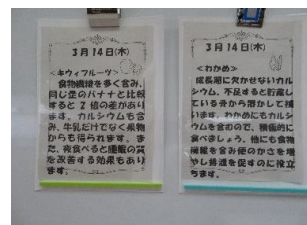 3月14日(木)
<キウィフルーツ>
食物繊維を多く含み、
同じ量のバナナと比較
すると2倍の差があり
ます。カルシウムも含
み、牛乳だけでなく果物
からも得られます。ま
た、夜食べると睡眠の質
を改善する効果もあり
ます。
3月14日(木)
<わかめ>
成長期に欠かせないカル
シウム。不足すると貯蔵し
ている骨から溶かして補
います。わかめにもカルシ
ウムを含むので、積極的に
食べましょう。他にも食物
繊維を含み便のかさを増
やし排泄を促すのに役立
ちます。